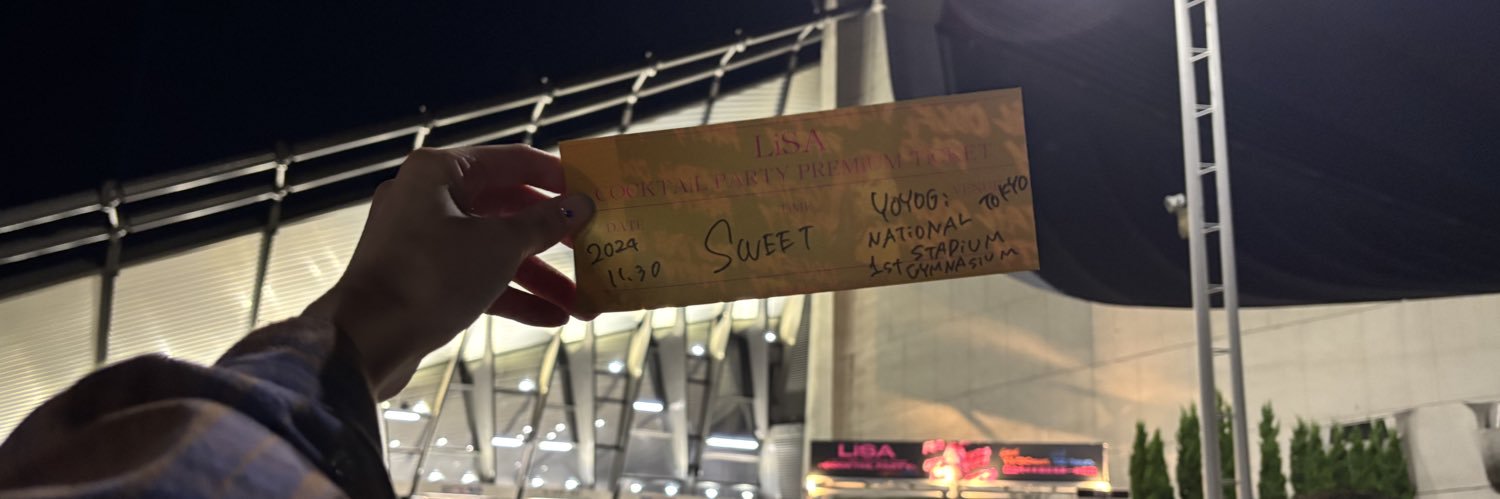 LiSA
COCKTAIL PARTY PREMIUM TICKET
DATE
TIME
2024
11.30
SWEET
YOYOGi
TOKYO
NATiONAL
STADiUM
1st GYMNASiUM
LiSA
COCKTAIL PARTY